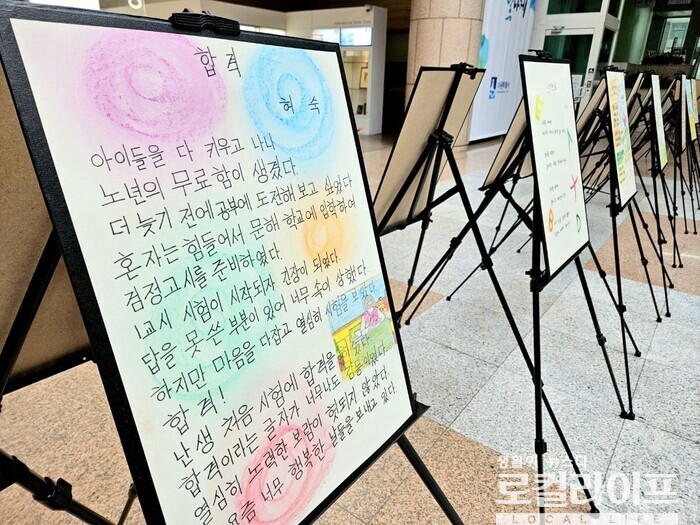 합격
허숙
아이들을 다 키우고 나니
노년의 무료함이 생겼다.
더 늦기 전에 공부에 도전해 보고 싶었다
혼자는 힘들어서 문해 학교에 입학하여
검정고시를 준비하였다.
1교시 시험이 시작되자 긴장이 되었다.
답을 못 쓴 부분이 있어 너무 속이 상했다
하지만 마음을 다잡고 열심히 시험을 보았다.
합격!
난생 처음 시험에 합격을
합격이라는 글자가 너무나도 감동이었다.
열심히 노력한 보람이 헛되지 않았다.
요즘 너무 행복한 날들을 보내고 있다.
로컬라이프
LOCAL LIFE